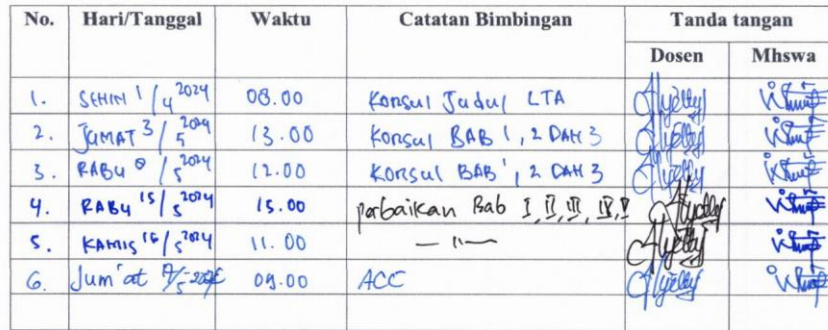 No. Hari/Tanggal Waktu Catatan Bimbingan Tanda tangan
Dosen Mhswa
1. SENIN 1/4 2024 08.00 Konsul Judul LTA
2. JUMAT 3/5 2024 13.00 Konsul BAB 1, 2 DAN 3
3. RABU 8/5 2024 12.00 Konsul BAB 1, 2 DAN 3
4. RABU 15/5 2024 15.00 perbaikan Bab I, II, III, IV, V
5. KAMIS 16/5 2024 11.00 — 11 —
6. Jum'at 17/5-2024 09.00 ACC